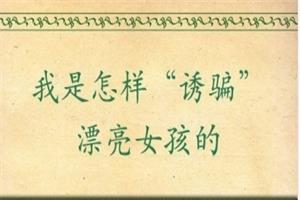 我是怎样“诱骗”
漂亮女孩的